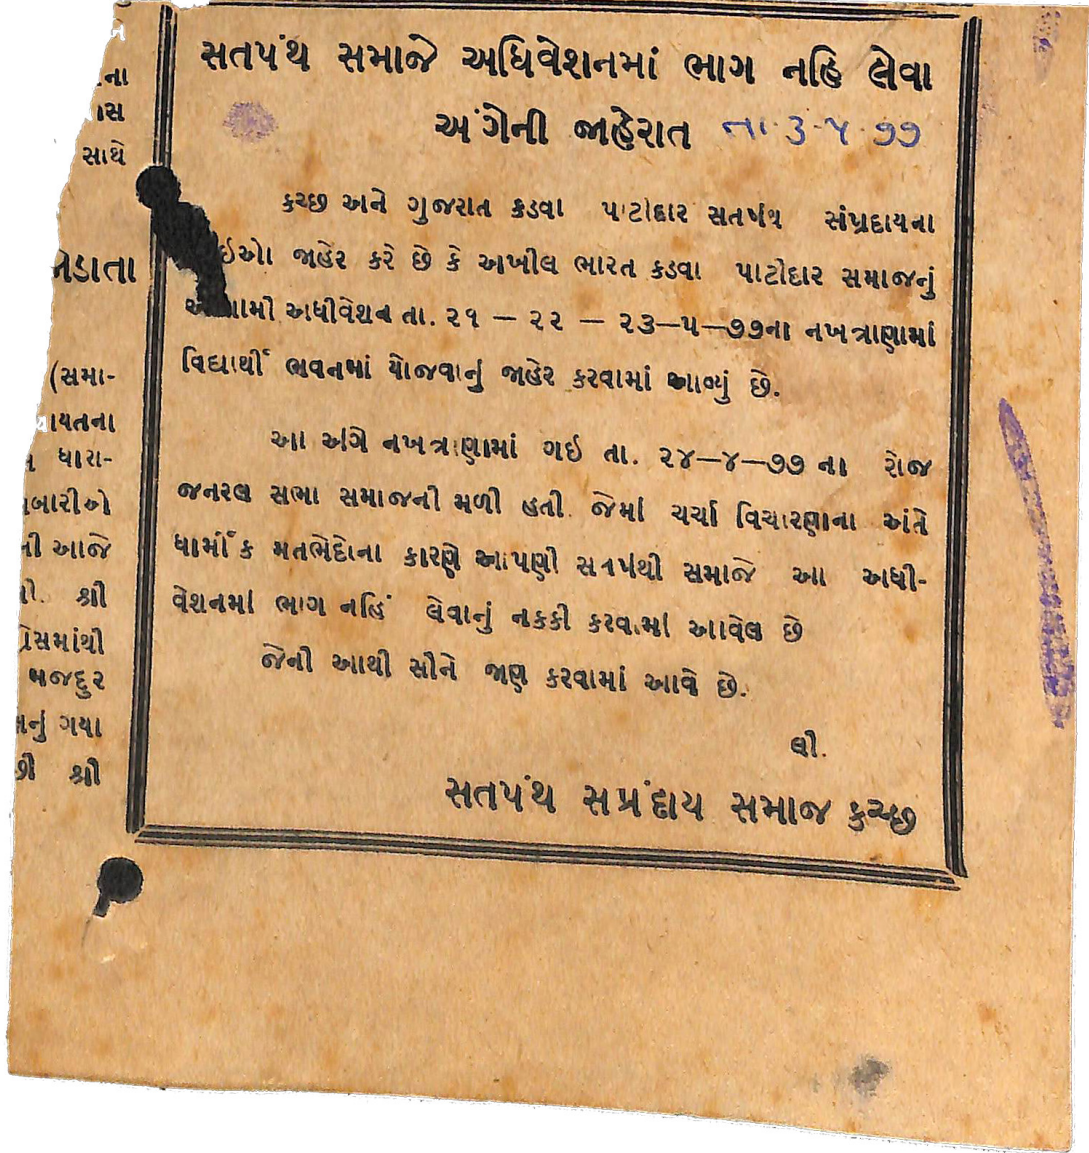 ના
ાસ
સાથે
ખેડાતા
(સમા-
ાયતના
ધારા-
ખબારીઓ
ની આજે
શ્રી
પ્રેસમાંથી
મજદુર
નું ગયા
શ્રી
સતપંથ સમાજે અધિવેશનમાં ભાગ નહિ લેવા
અંગેની જાહેરાત તા. ૩-૫-૭૭
કચ્છ અને ગુજરાત કડવા પાટીદાર સતપંથ સંપ્રદાયના
ઇઓ જાહેર કરે છે કે અખીલ ભારત કડવા પાટીદાર સમાજનું
આગામી અધીવેશન તા. ૨૧ — ૨૨ — ૨૩—૫—૭૭ના નખત્રાણામાં
વિદ્યાર્થી ભવનમાં યોજવાનું જાહેર કરવામાં આવ્યું છે.
આ અંગે નખત્રાણામાં ગઇ તા. ૨૪—૪—૭૭ ના રોજ
જનરલ સભા સમાજની મળી હતી. જેમાં ચર્ચા વિચારણાના અંતે
ધાર્મીક મતભેદોના કારણે આપણી સતપંથી સમાજે આ અધી-
વેશનમાં ભાગ નહિં લેવાનું નકકી કરવામાં આવેલ છે
જેની આથી સૌને જાણ કરવામાં આવે છે.
લી.
સતપંથ સપ્રંદાય સમાજ કચ્છ